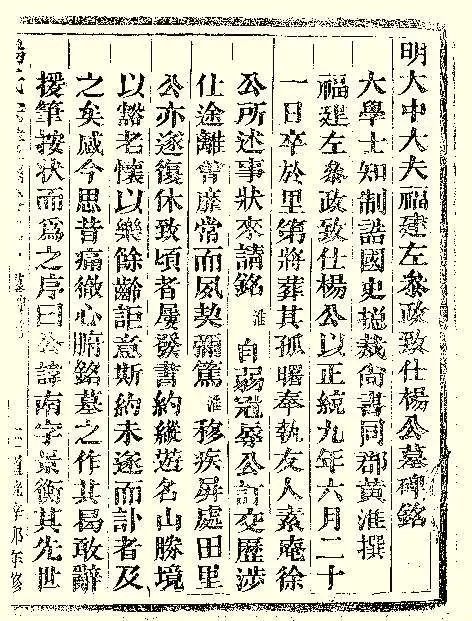 明大中大夫福建左參政致仕楊公墓碑銘
大學士知制誥國史總裁尚書同郡黃淮撰
福建左參政致仕楊公以正統九年六月二十
一日卒於里第將葬其孤曙奉執友人素庵徐
公所述事狀來請銘淮自弱冠辱公訂交歷涉
仕途離曾靡常而夙契彌篤淮移疾屏處田里
公亦遂復休致頃者屢發書約縱遊名山勝境
以豁老懷以樂餘齡詎意斯約未遂而訃者及
之矣感今思昔痛徹心腑銘墓之作其曷敢辭
援筆按状而爲之序曰公諱南字景衡其先世